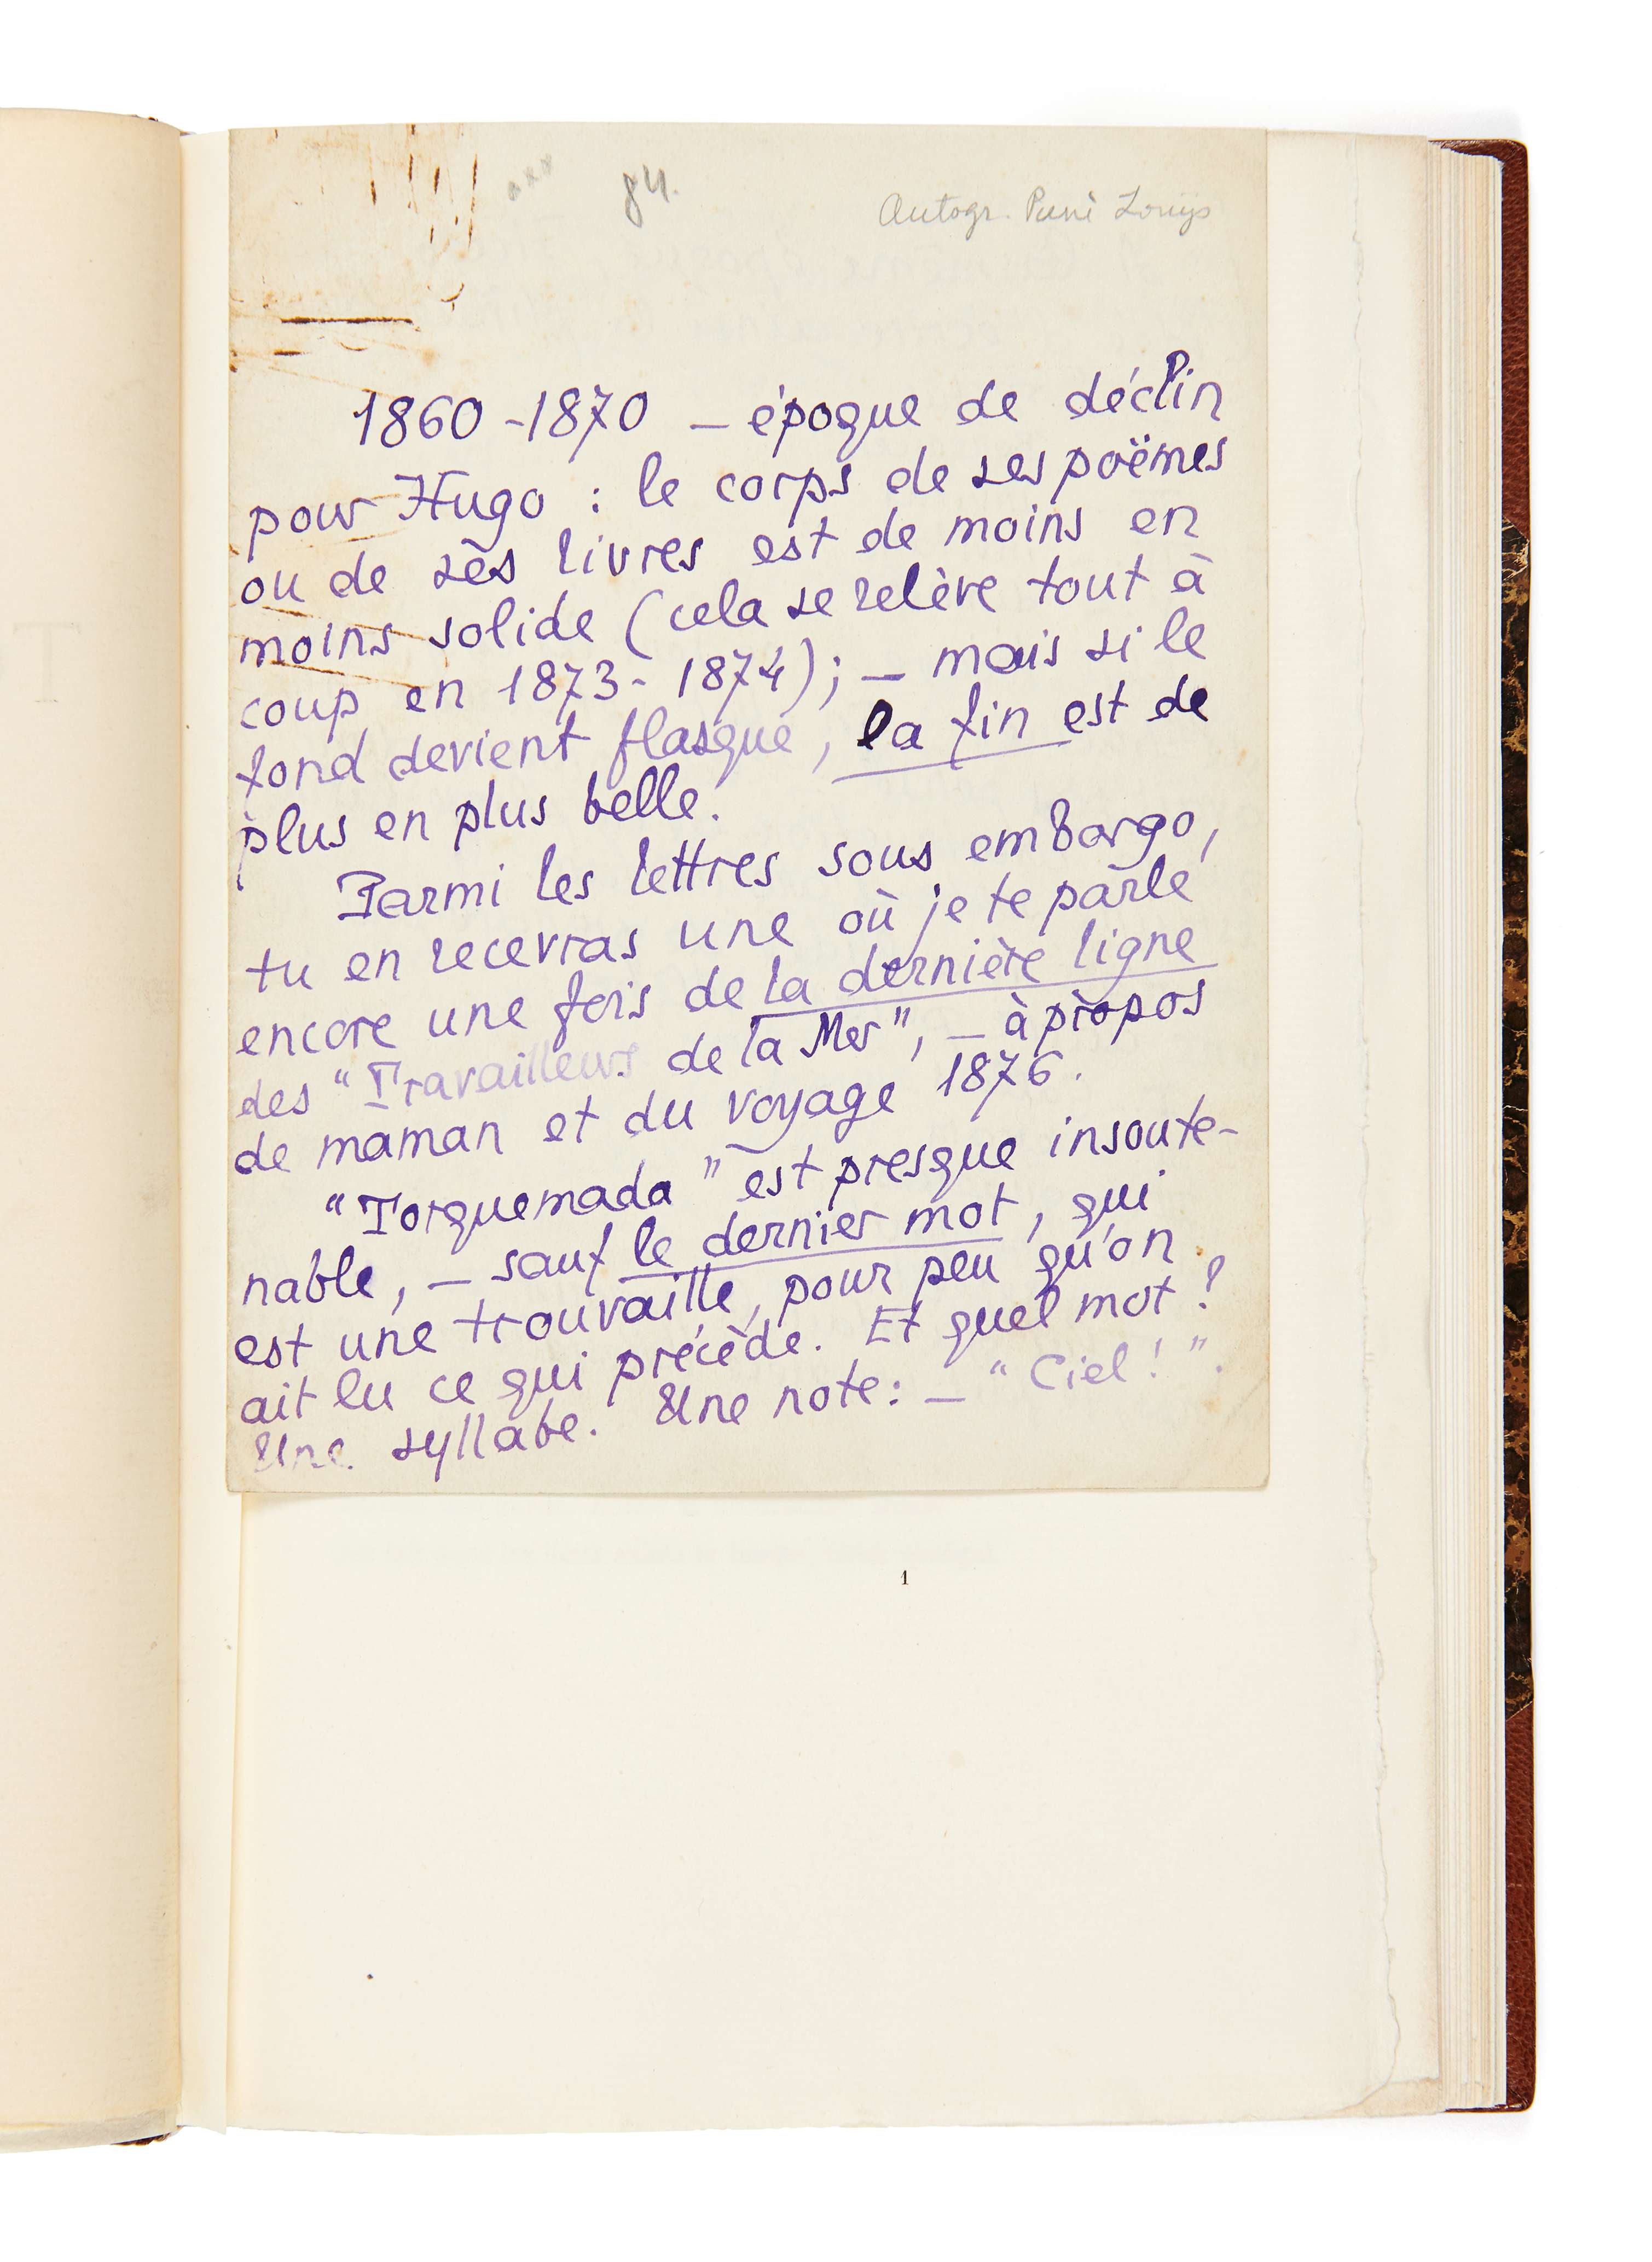 84.
Autogr. Pierre Louÿs
1860-1870 — époque de déclin
pour Hugo : le corps de ses poëmes
ou de ses livres est de moins en
moins solide (cela se relève tout à
coup en 1873-1874) ; — mais si le
fond devient flasque, la fin est de
plus en plus belle.
Parmi les lettres sous embargo,
tu en recevras une où je te parle
encore une fois de la dernière ligne
des “Travailleurs de la Mer”, — à propos
de maman et du voyage 1876.
“Torquemada” est presque insoute-
nable, — sauf le dernier mot, qui
est une trouvaille, pour peu qu'on
ait lu ce qui précède. Et quel mot ?
Une syllabe. Une note : — “Ciel !”.
1